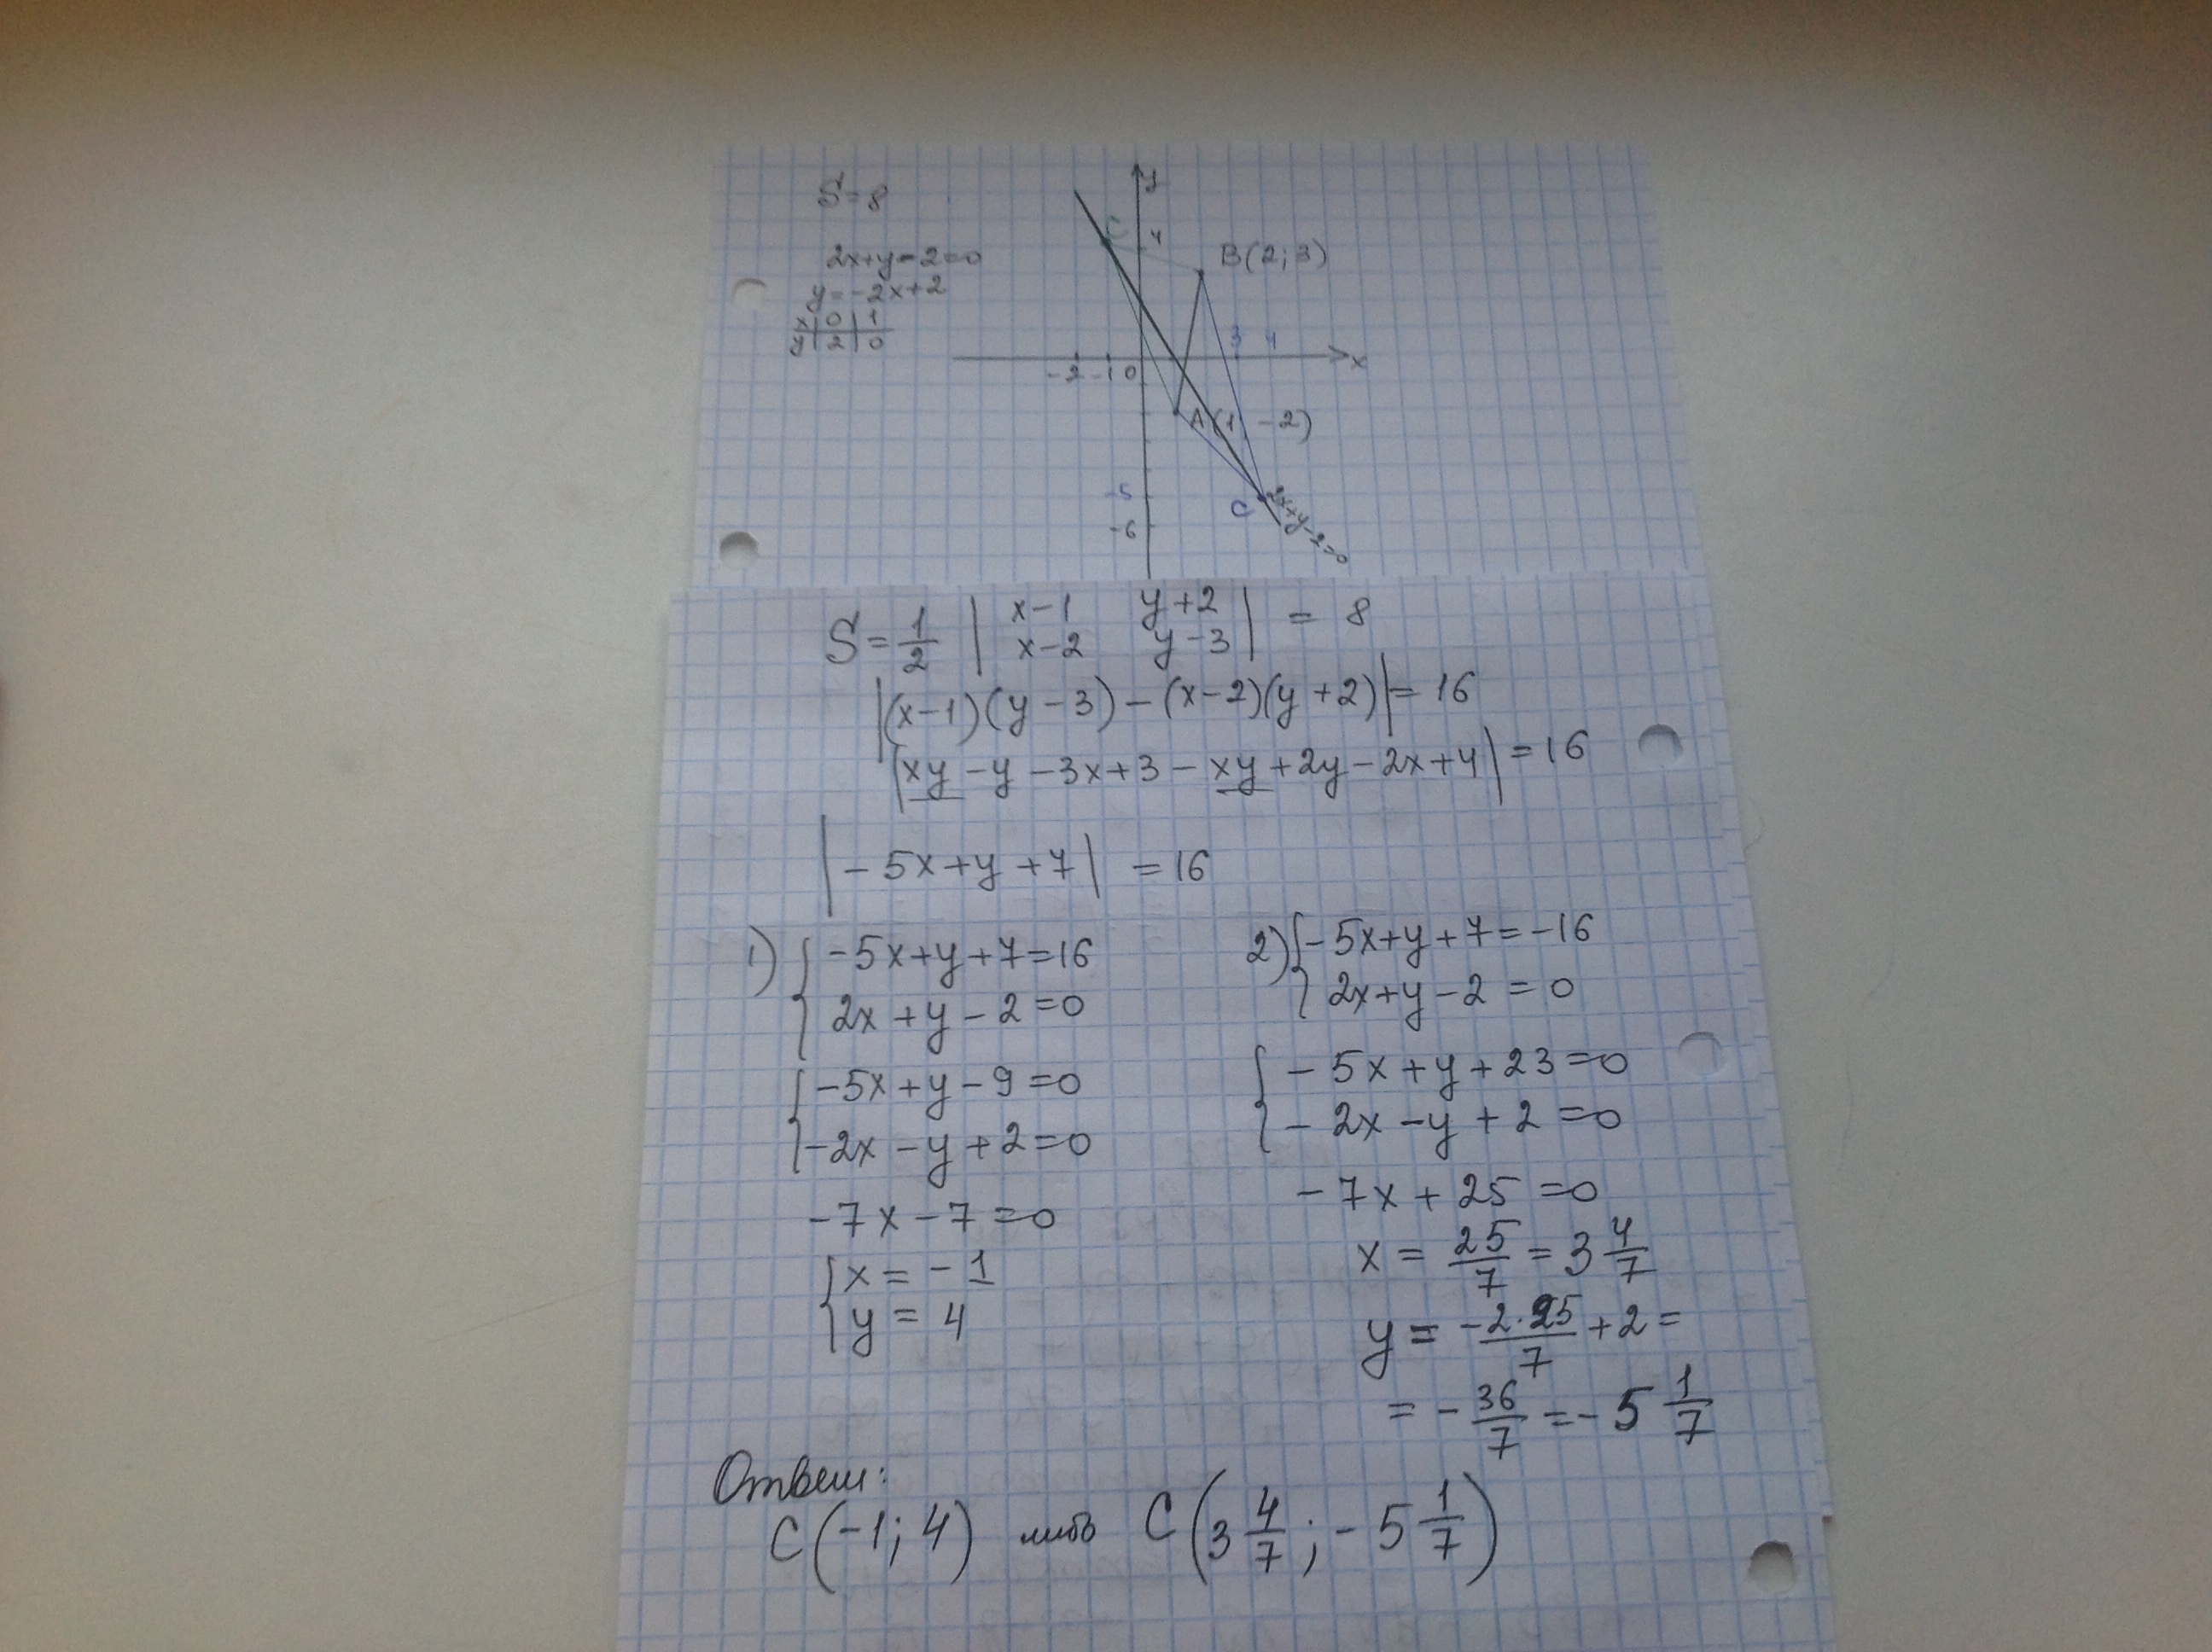 S=8
2x+y-2=0
y=-2x+2
x | 0 | 1
y | 2 | 0
y
C
4
B(2; 3)
3 4
-2 -1 0
x
A(1 -2)
-5
C
-6
2x+y-2=0
S = 1/2 | x-1 y+2 | = 8
| x-2 y-3 |
|(x-1)(y-3)-(x-2)(y+2)|=16
|xy-y-3x+3-xy+2y-2x+4|=16
|-5x+y+7| =16
1) { -5x+y+7=16
2x+y-2=0
{ -5x+y-9=0
-2x-y+2=0
-7x-7=0
{ x=-1
y=4
2) { -5x+y+7=-16
2x+y-2=0
{ -5x+y+23=0
-2x-y+2=0
-7x+25=0
x = 25/7 = 3 4/7
y = -2·25/7 + 2 =
= -36/7 = -5 1/7
Ответ:
C(-1; 4) либо C(3 4/7; -5 1/7)